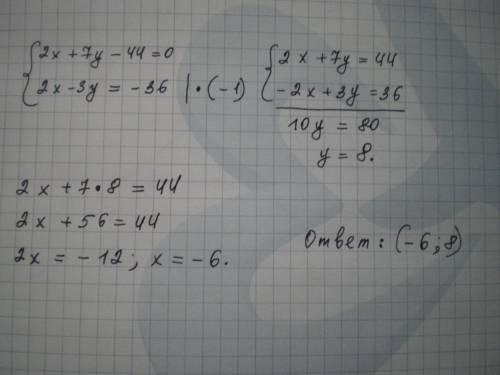 {2x + 7y - 44 = 0
2x - 3y = -36 | • (-1)
{2x + 7y = 44
-2x + 3y = 36
10y = 80
y = 8.
2x + 7 • 8 = 44
2x + 56 = 44
2x = -12; x = -6.
Ответ: (-6; 8)